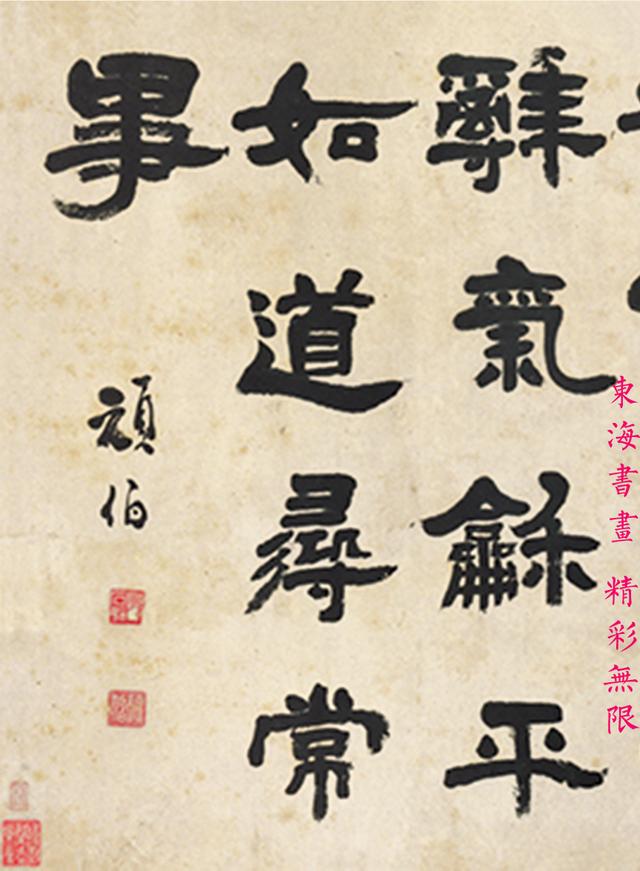 辭氣龢平
如道尋常
事
頑伯
東海書畫 精彩無限